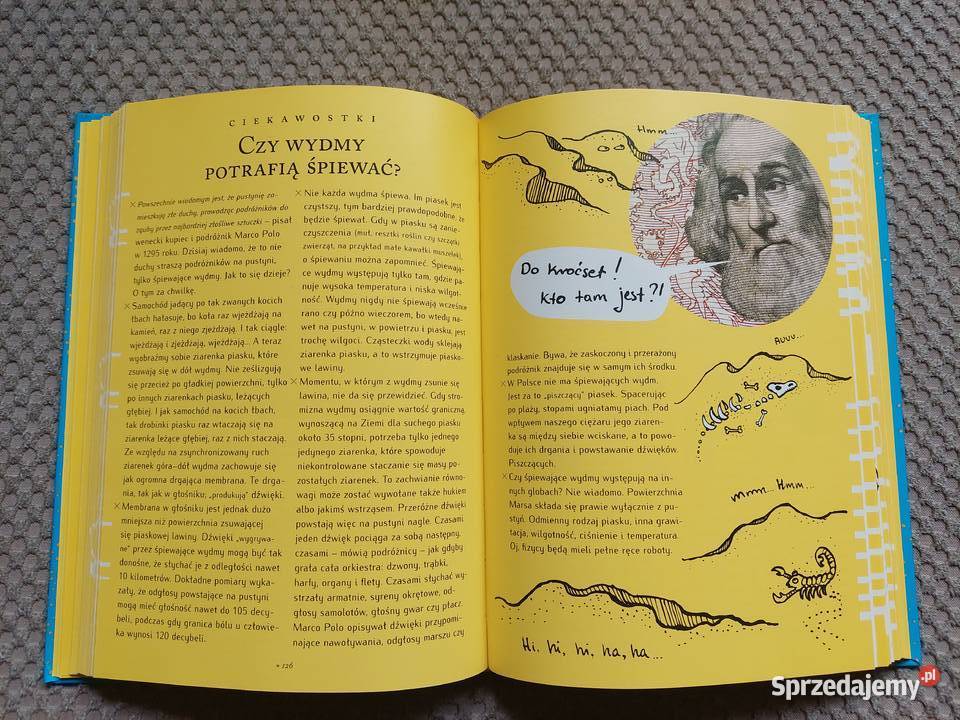 CIEKAWOSTKI
CZY WYDMY
POTRAFIĄ ŚPIEWAĆ?
× Powszechnie wiadomym jest, że pustynię za-
mieszkują złe duchy, prowadząc podróżników do
zguby przez najbardziej złośliwe sztuczki – pisał
wenecki kupiec i podróżnik Marco Polo
w 1295 roku. Dzisiaj wiadomo, że to nie
duchy straszą podróżników na pustyni,
tylko śpiewające wydmy. Jak to się dzieje?
O tym za chwilkę.
× Samochód jadący po tak zwanych kocich
łbach hałasuje, bo koła raz wjeżdżają na
kamień, raz z niego zjeżdżają. I tak ciągle:
wjeżdżają i zjeżdżają, wjeżdżają... A teraz
wyobraźmy sobie ziarenka piasku, które
zsuwają się w dół wydmy. Nie ześlizgują
się przecież po gładkiej powierzchni, tylko
po innych ziarenkach piasku, leżących
głębiej. I jak samochód na kocich łbach,
tak drobinki piasku raz wtaczają się na
ziarenka leżące głębiej, raz z nich staczają.
Ze względu na zsynchronizowany ruch
ziarenek góra-dół wydma zachowuje się
jak ogromna drgająca membrana. Te drga-
nia, tak jak w głośniku, „produkują” dźwięki.
× Membrana w głośniku jest jednak dużo
mniejsza niż powierzchnia zsuwającej
się piaskowej lawiny. Dźwięki „wygrywa-
ne” przez śpiewające wydmy mogą być tak
donośne, że słychać je z odległości nawet
10 kilometrów. Dokładne pomiary wyka-
zały, że odgłosy powstające na pustyni
mogą mieć głośność nawet do 105 decy-
beli, podczas gdy granica bólu u człowie-
ka wynosi 120 decybeli.
× Nie każda wydma śpiewa. Im piasek jest
czystszy, tym bardziej prawdopodobne, że
będzie śpiewał. Gdy w piasku są zanie-
czyszczenia (muł, resztki roślin czy szczątki
zwierząt, na przykład małe kawałki muszelek),
o śpiewaniu można zapomnieć. Śpiewają-
ce wydmy występują tylko tam, gdzie pa-
nuje wysoka temperatura i niska wilgot-
ność. Wydmy nigdy nie śpiewają wcześnie
rano czy późno wieczorem, bo wtedy na-
wet na pustyni, w powietrzu i piasku, jest
trochę wilgoci. Cząsteczki wody sklejają
ziarenka piasku, a to wstrzymuje piasko-
we lawiny.
× Momentu, w którym z wydmy zsunie się
lawina, nie da się przewidzieć. Gdy stro-
mizna wydmy osiągnie wartość graniczną,
wynoszącą na Ziemi dla suchego piasku
około 35 stopni, potrzeba tylko jednego
jedynego ziarenka, które spowoduje
niekontrolowane staczanie się masy po-
zostałych ziarenek. To zachwianie równo-
wagi może zostać wywołane także hukiem
albo jakimś wstrząsem. Przeróżne dźwięki
powstają więc na pustyni nagle. Czasami
jeden dźwięk pociąga za sobą następny,
czasami – mówią podróżnicy – jak gdyby
grała cała orkiestra: dzwony, trąbki,
harfy, organy i flety. Czasami słychać wy-
strzały armatnie, syreny okrętowe, od-
głosy samolotów, głośny gwar czy płacz.
Marco Polo opisywał dźwięki przypomi-
nające nawoływania, odgłosy marszu czy
126
Hmm
Do kroćset!
kto tam jest?!
klaskanie. Bywa, że zaskoczony i przerażony
podróżnik znajduje się w samym ich środku.
× W Polsce nie ma śpiewających wydm.
Jest za to „piszczący” piasek. Spacerując
po plaży, stopami ugniatamy piach. Pod
wpływem naszego ciężaru jego ziaren-
ka są między siebie wciskane, a to powo-
duje ich drgania i powstawanie dźwięków.
Piszczących.
× Czy śpiewające wydmy występują na in-
nych globach? Nie wiadomo. Powierzchnia
Marsa składa się prawie wyłącznie z pu-
styń. Odmienny rodzaj piasku, inna grawi-
tacja, wilgotność, ciśnienie i temperatura.
Oj, fizycy będą mieli pełne ręce roboty.
Auuu...
mmm... Hmm...
Hi, hi, hi, ha, ha...
Sprzedajemy.pl